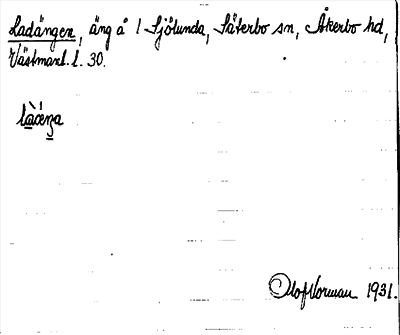 Ladängen, äng å 1 Sjölunda, Säterbo sn, Åkerbo hd,
Västmanl. l. 30.
Olof Norman 1931.